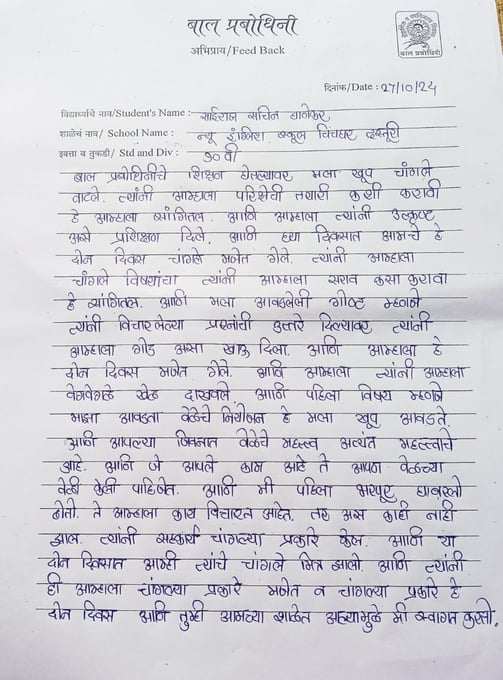 बाल प्रबोधिनी
अभिप्राय/Feed Back
बाल प्रबोधिनी
दिनांक/Date : 27/10/24
विद्यार्थ्याचे नाव/Student's Name : साईराज सचिन
शाळेचं नाव/ School Name : न्यू इंग्लिश स्कूल
इयत्ता व तुकडी/ Std and Div : १० वी
बाल प्रबोधिनीचे शिक्षण घेतल्यावर मला खूप चांगले
वाटले. त्यांनी आम्हाला परिक्षेची तयारी कशी करावी
हे आम्हाला सांगितल. आणि आम्हाला त्यांनी उत्कृष्ट
असे प्रशिक्षण दिले. आणि ह्या दिवसात आमचे हे
दोन दिवस चांगले मजेत गेले. त्यांनी आम्हाला
चांगले विषयांचा त्यांनी आम्हाला सराव कसा करावा
हे सांगितल. आणि मला आवडलेली गोष्ट म्हणजे
त्यांनी विचारलेल्या प्रश्नांची उत्तरे दिल्यावर त्यांनी
आम्हाला गोड असा खाऊ दिला. आणि आम्हाला हे
दोन दिवस मजेत गेले. आणि आम्हाला त्यांनी आम्हाला
वेगवेगळे खेळ दाखवले. आणि पहिला विषय म्हणजे
माझा आवडता वेळेचे नियोजन हे मला खूप आवडते.
आणि आपल्या जिवनात वेळेचे महत्त्व अत्यंत महत्त्वाचे
आहे. आणि जे आपले काम आहे ते आपण वेळच्या
वेळी केली पाहिजेत. आणि मी पहिला भरपूर घाबरलो
होतो. ते आम्हाला काय विचारत आहेत. तर अस काही नाही
झाल. त्यांनी चांगल्या प्रकारे केल. आणि या
दोन दिवसात आम्ही त्यांचे चांगले मित्र झालो. आणि त्यांनी
ही आम्हाला चांगल्या प्रकारे मजेत व चांगल्या प्रकारे हे
दोन दिवस आणि तुम्ही आमच्या शाळेत आल्यामुळे मी स्वागत करतो.